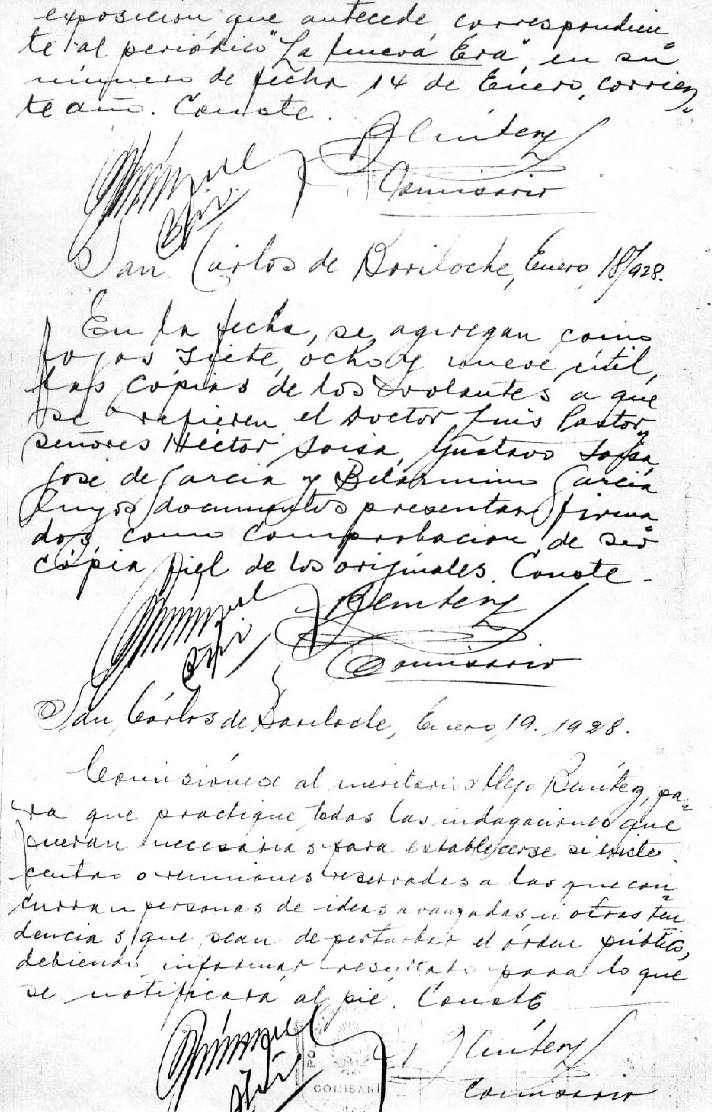 exposicion que antecede correspondien
te al periódico "La Nueva Éra", en su
número de fecha 14 de Enero, corrien
te año. Conste.
Comisario
San Carlos de Bariloche, Enero, 18/928.
En la fecha, se agregan como
fojas siete, ocho y nueve útil,
las cópias de los volantes a que
se refieren el Doctor Luis Pastor,
señores Héctor Soisa, Gustavo Soisa,
José de Garcia y Belarmino Garcia
cuyos documentos presentan firma
dos como comprobacion de ser
cópia fiel de los originales. Conste-
Comisario
San Cárlos de Bariloche, Enero, 19. 1928.
Comisiónese al meritorio Benítez, pa-
ra que practique todas las indagaciones que
fueran necesarias para establecerse si existe
centro o reuniones reservadas a las que con
curran personas de ideas avanzadas u otras ten
dencias que sean de perturbar el órden público,
debiendo informar resultado para lo que
se notificará al pié. Conste
COMISARÍ
Comisario